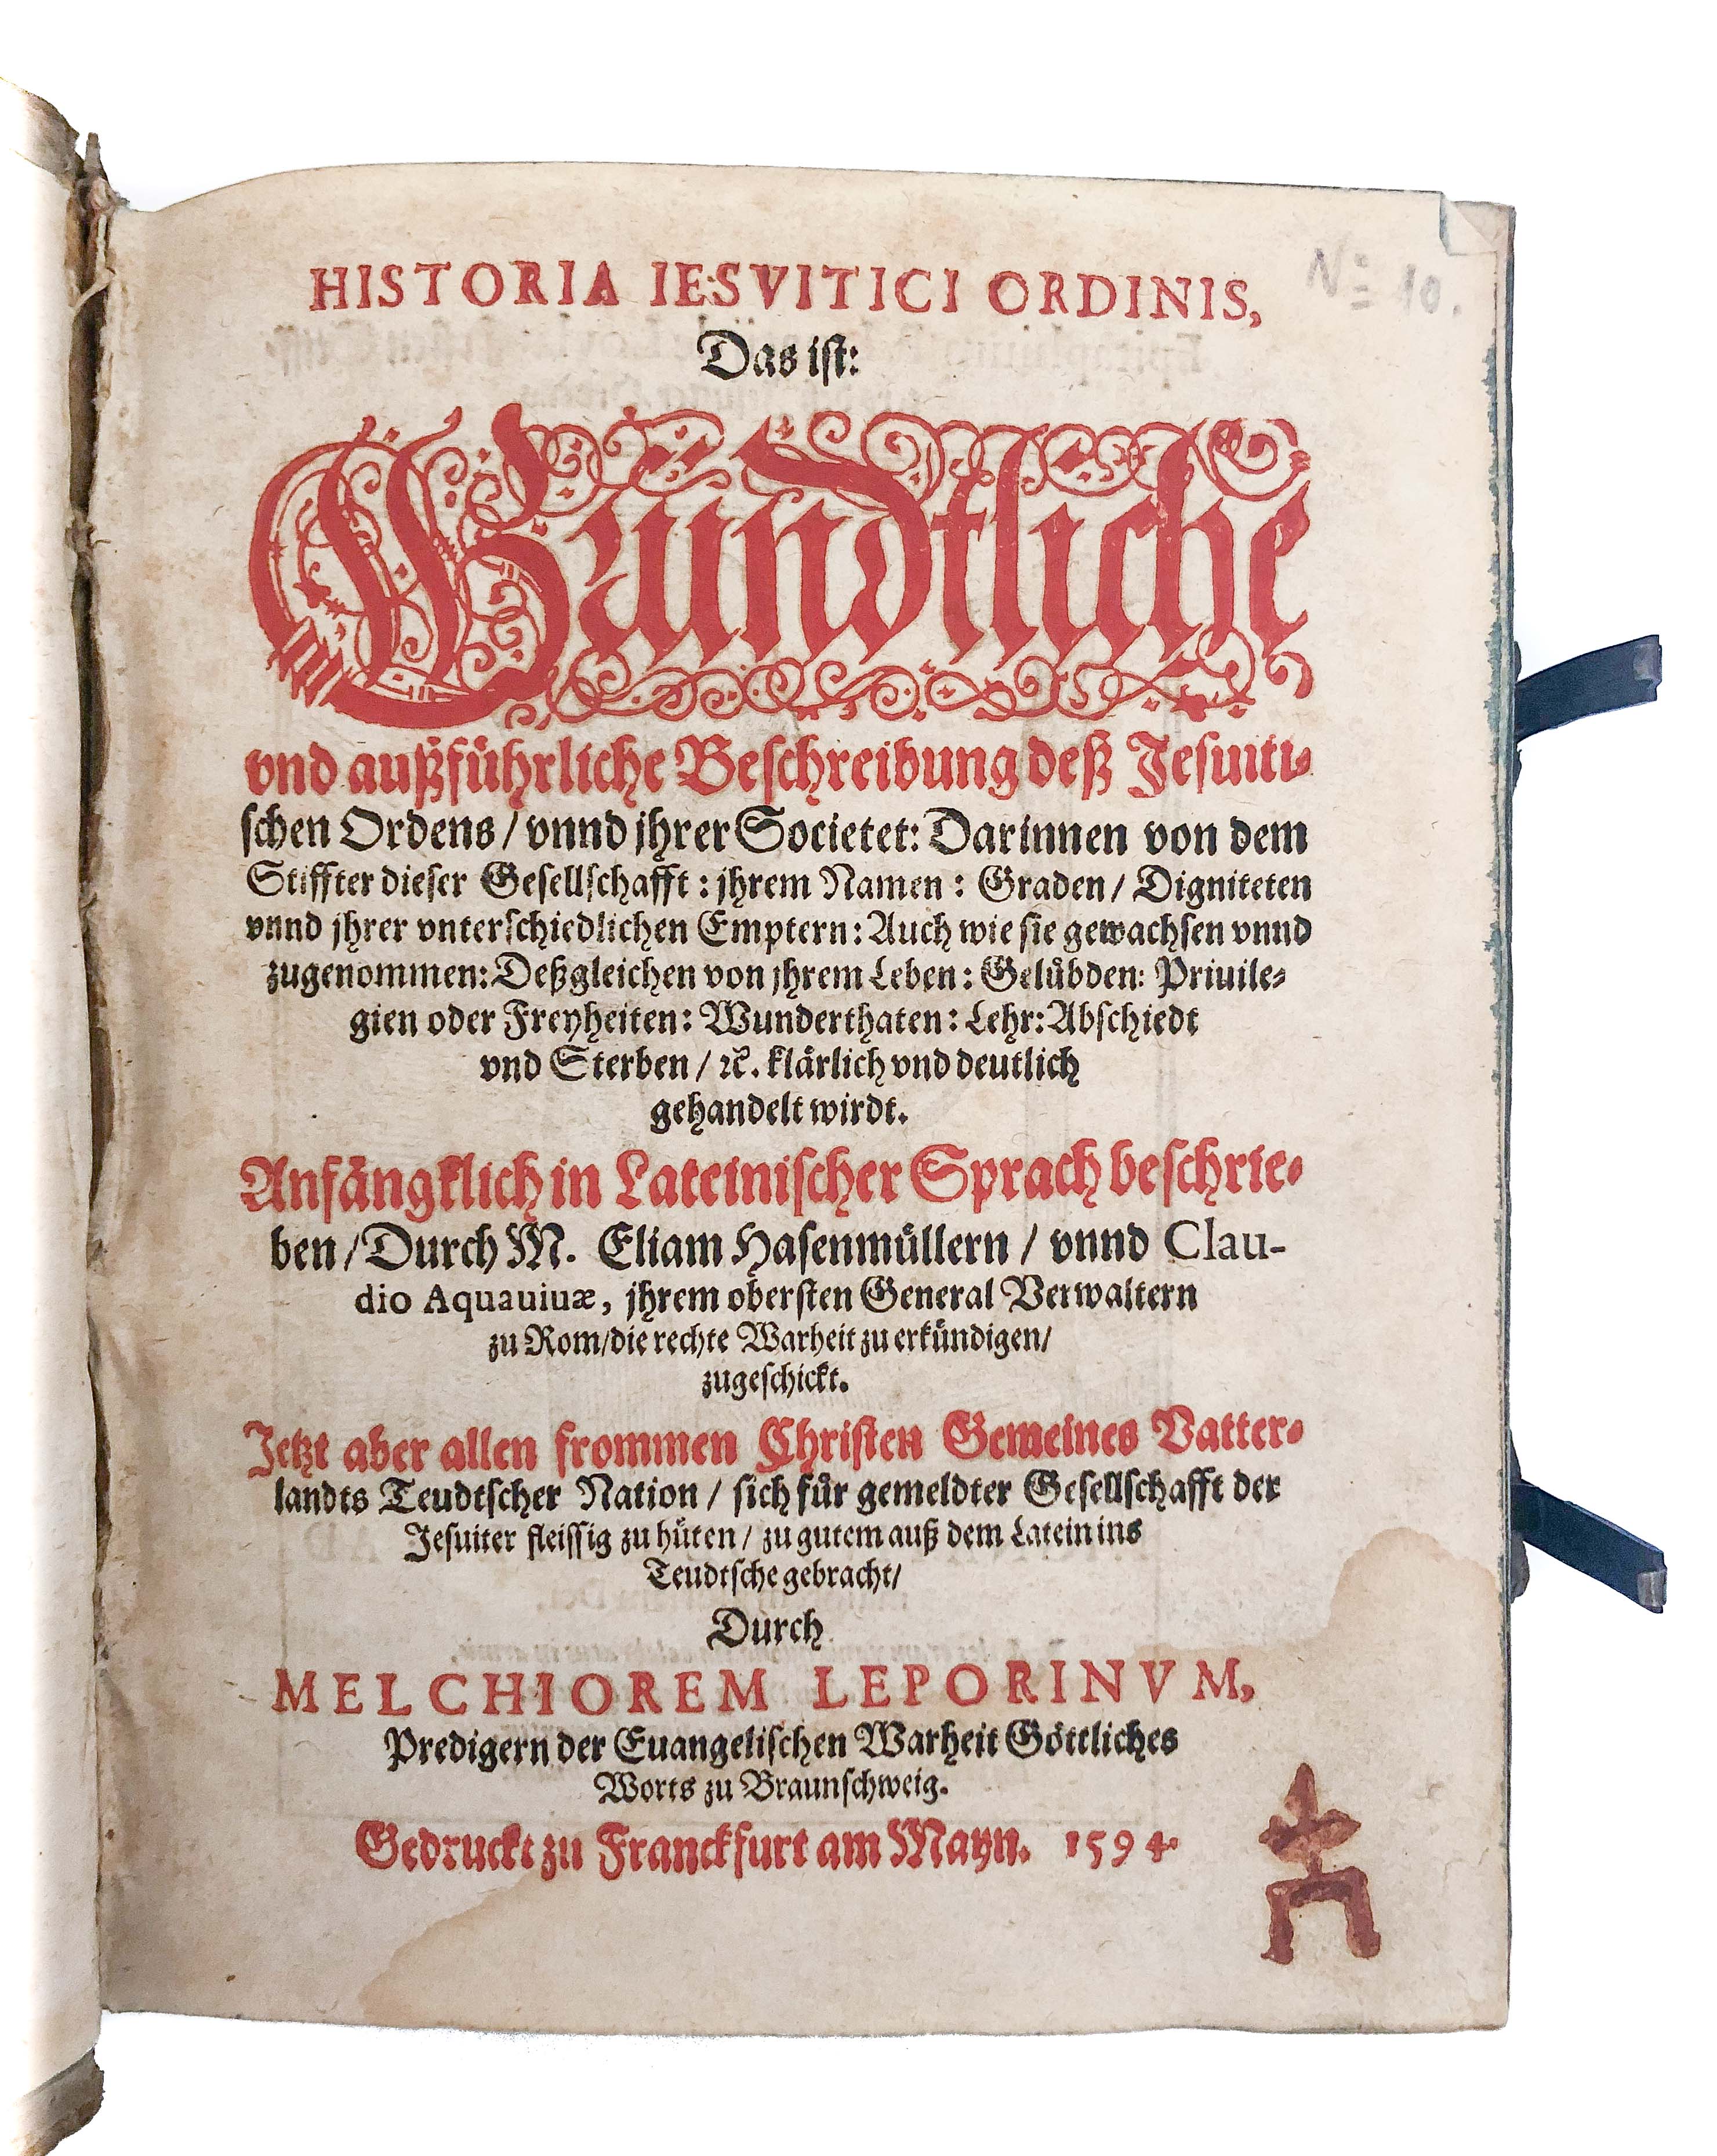 HISTORIA IESVITICI ORDINIS,
Nº 10.
Das ist:
Gründtliche
vnd außführliche Beschreibung deß Jesuiti-
schen Ordens / vnnd jhrer Societet: Darinnen von dem
Stiffter dieser Gesellschafft: jhrem Namen: Graden/ Digniteten
vnnd jhrer vnterschiedlichen Emptern: Auch wie sie gewachsen vnnd
zugenommen: Deßgleichen von jhrem Leben: Gelübden: Priuile-
gien oder Freyheiten: Wunderthaten: Lehr: Abschiedt
vnd Sterben / ꝛc. klärlich vnd deutlich
gehandelt wirdt.
Anfängklich in Lateinischer Sprach beschrie-
ben / Durch M. Eliam Hasenmüllern / vnnd Clau-
dio Aquauiuæ, jhrem obersten General Verwaltern
zu Rom/die rechte Warheit zu erkündigen/
zugeschickt.
Jetzt aber allen frommen Christen Gemeines Vatter-
landts Teudtscher Nation / sich für gemeldter Gesellschafft der
Jesuiter fleissig zu hüten / zu gutem auß dem Latein ins
Teudtsche gebracht/
Durch
MELCHIOREM LEPORINVM,
Predigern der Euangelischen Warheit Göttliches
Worts zu Braunschweig.
Gedruckt zu Franckfurt am Mayn. 1594.